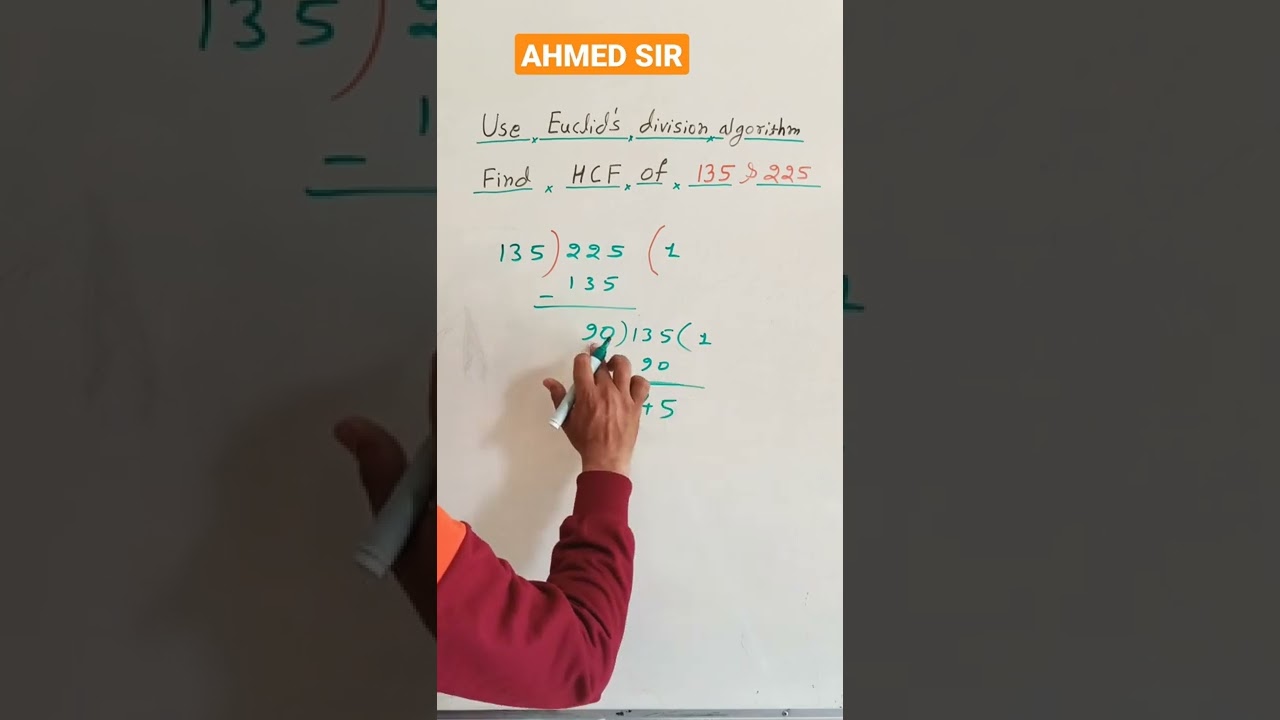 AHMED SIR
Use Euclid's division algorithm
Find HCF of 135 & 225
135)225(1
- 135
90)135(1
90
45